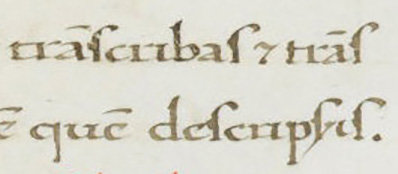 trāscribas ⁊ trās
ē quē descripsis.